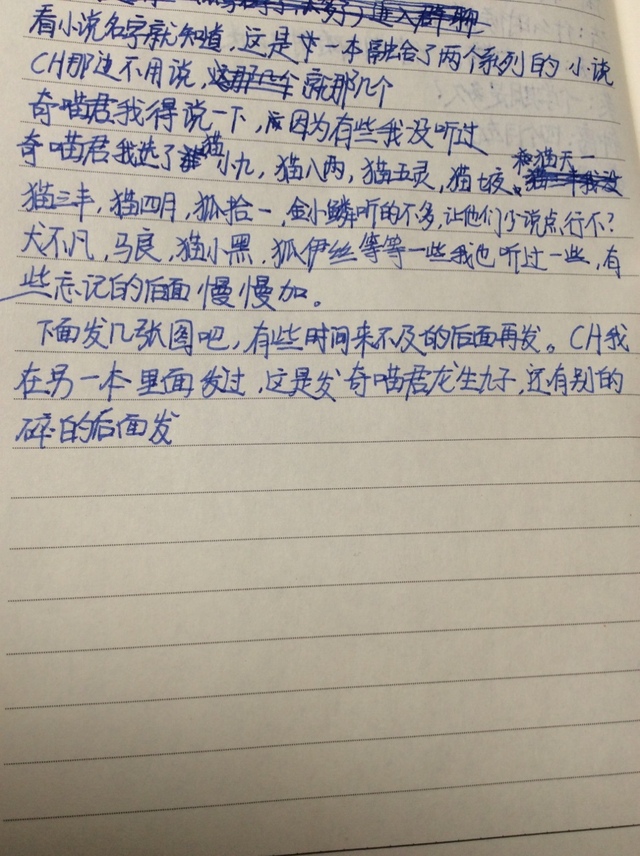 进入群聊
看小说名字就知道,这是一本融合了两个系列的小说
CH那边不用说,就那几个
奇喵君我得说一下,因为有些我没听过
奇喵君我选了猫小九,猫八两,猫五灵,猫七夜,和猫天一
猫三丰,猫四月,狐拾一,金小鳞听的不多,让他们少说点,行不?
犬不凡,马良,猫小黑,狐伊丝等等一些我也听过一些,有
些忘记的后面慢慢加。
下面发几张图吧,有些时间来不及的后面再发。CH我
在另一本里面发过,这是发奇喵君龙生九子,还有别的
碎的后面发